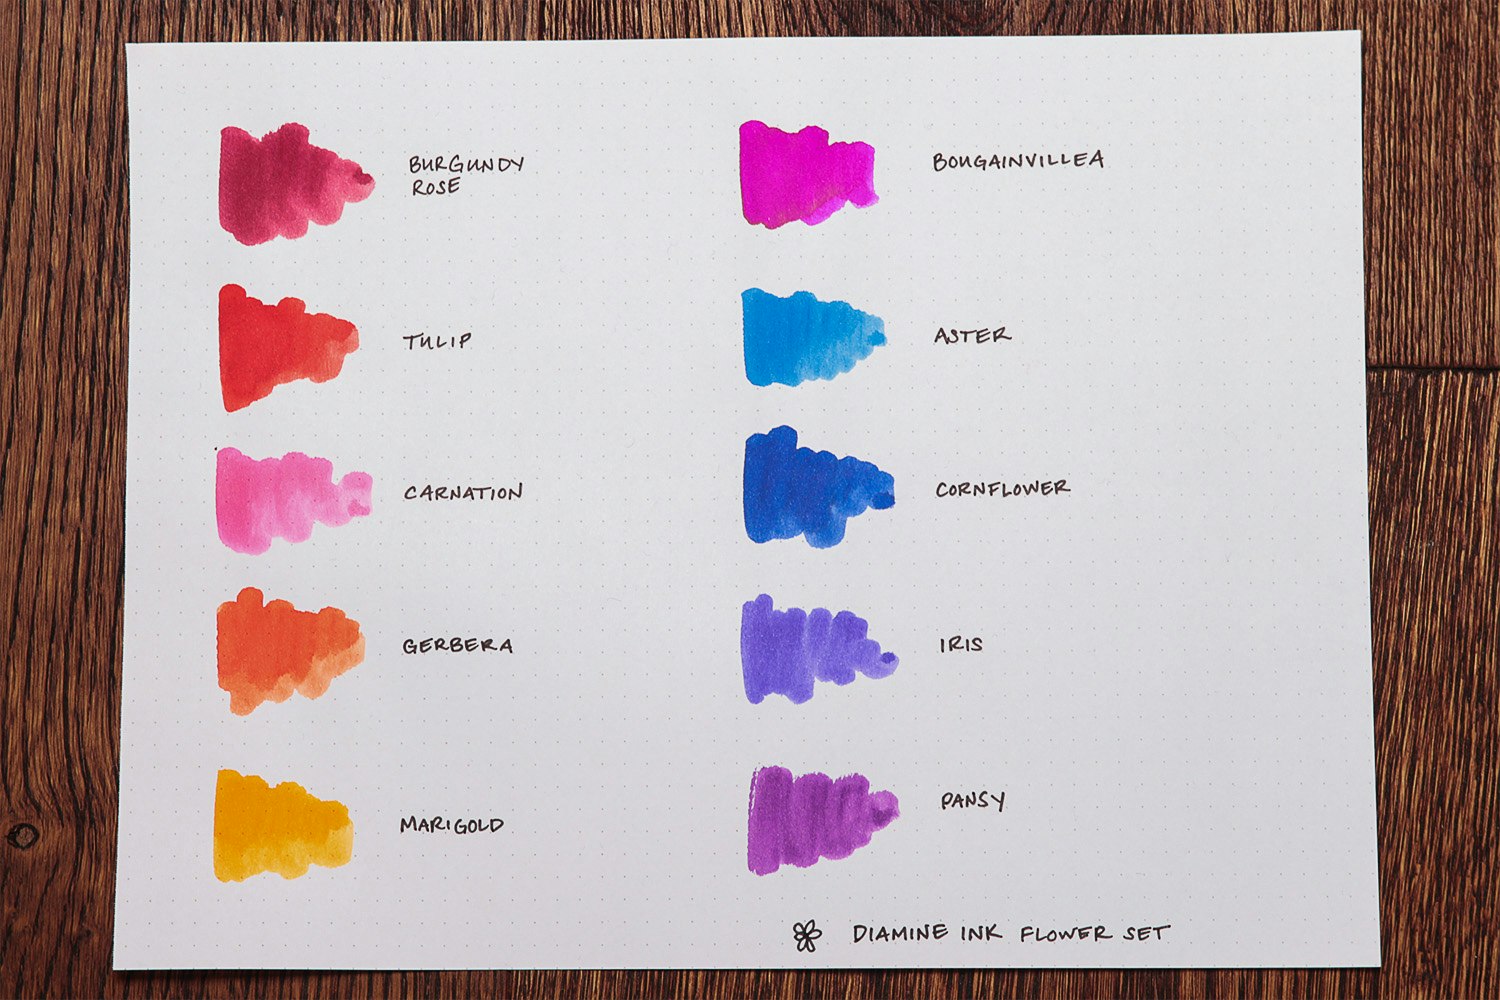 BURGUNDY
ROSE
TULIP
CARNATION
GERBERA
MARIGOLD
BOUGAINVILLEA
ASTER
CORNFLOWER
IRIS
PANSY
DIAMINE INK FLOWER SET